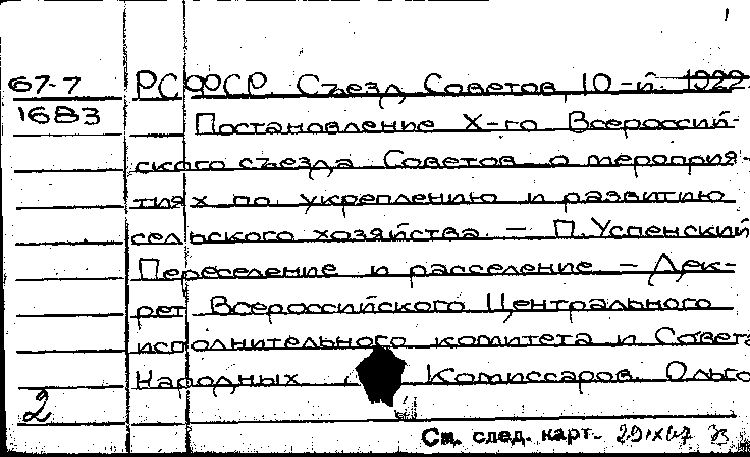 1
67-7 РСФСР. Съезд Советов, 10-й. 1922
1683 Постановление X-го Всероссий-
ского съезда Советов о мероприя-
тиях по укреплению и развитию
сельского хозяйства. – П. Успенский
Переселение и расселение – Дек-
рет Всероссийского Центрального
исполнительного комитета и Совета
Народных Комиссаров. Ольго
2
См. след. карт.